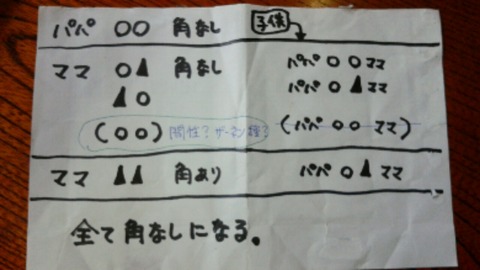 パパ ○○ 角なし 子供
ママ ○▲ 角なし パパ ○○ ママ
▲○ パパ ○▲ ママ
(○○) 間性?ザーネン種? (パパ ○○ ママ)
ママ ▲▲ 角あり パパ ○▲ ママ
全て角なしになる。